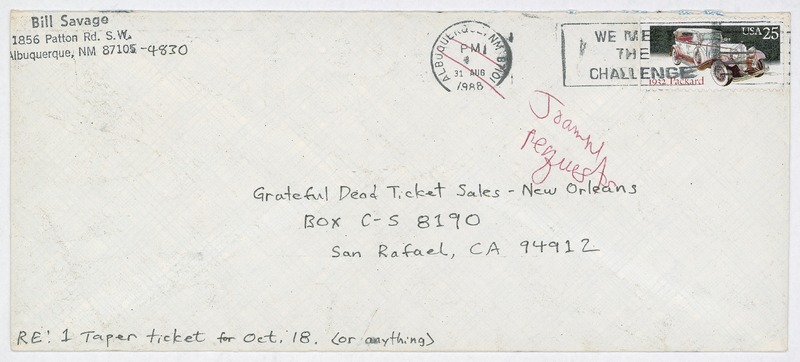 Bill Savage
1856 Patton Rd. S.W.
Albuquerque, NM 87105-4830
ALBUQUERQUE, NM 8710
PM
31 AUG
1988
WE ME
THE
CHALLENGE
USA 25
1932 Packard
request
Grateful Dead Ticket Sales - New Orleans
BOX C-S 8190
San Rafael, CA 94912
RE: 1 Taper ticket for Oct. 18. (or anything)